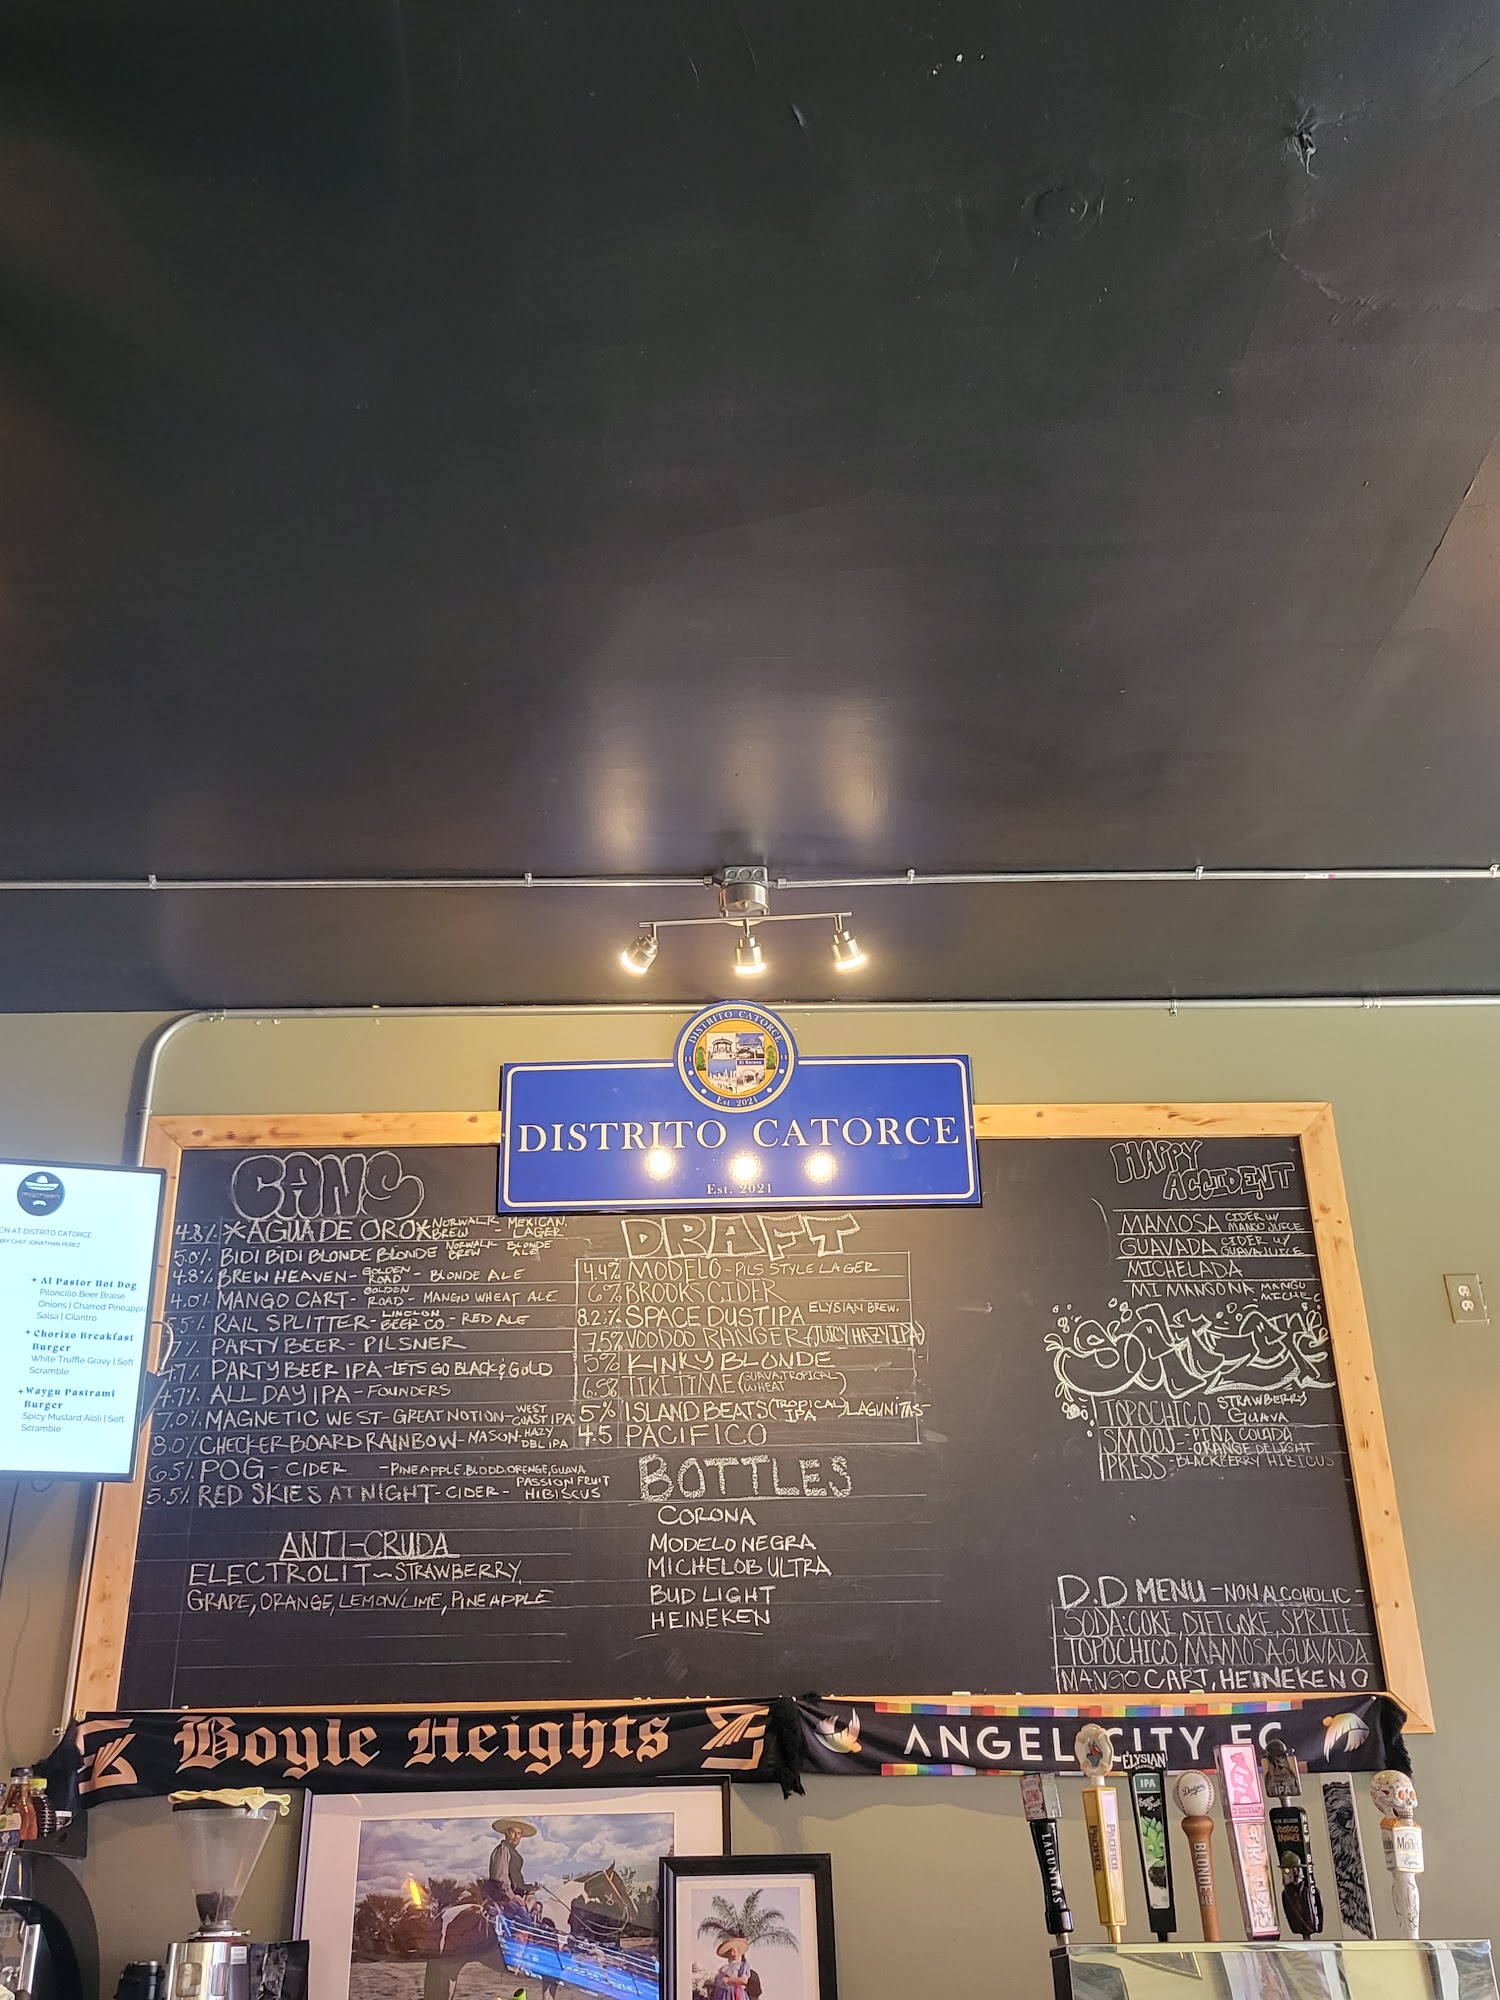 DISTRITO CATORCE
El Sereno
Est. 2021
DISTRITO CATORCE
Est. 2021
macheen
EN AT DISTRITO CATORCE
BY CHEF JONATHAN PEREZ
+ Al Pastor Hot Dog
Piloncillo Beer Braise
Onions | Charred Pineapple
Salsa | Cilantro
+ Chorizo Breakfast
Burger
White Truffle Gravy | Soft
Scramble
+ Waygu Pastrami
Burger
Spicy Mustard Aioli | Soft
Scramble
CANS
4.8% *AGUA DE ORO* NORWALK BREW - MEXICAN LAGER
5.0% BIDI BIDI BLONDE BLONDE NORWALK BREW BLONDE ALE
4.8% BREW HEAVEN - GOLDEN ROAD - BLONDE ALE
4.0% MANGO CART - GOLDEN ROAD - MANGO WHEAT ALE
5.5% RAIL SPLITTER - LINCLON BEER CO. - RED ALE
7% PARTY BEER - PILSNER
4.7% PARTY BEER IPA - LETS GO BLACK & GOLD
4.7% ALL DAY IPA - FOUNDERS
7.0% MAGNETIC WEST - GREAT NOTION - WEST COAST IPA
8.0% CHECKERBOARD RAINBOW - MASON - HAZY DBL IPA
6.5% POG - CIDER - PINEAPPLE, BLOOD ORENGE, GUAVA
5.5% RED SKIES AT NIGHT - CIDER - PASSION FRUIT HIBISCUS
ANTI-CRUDA
ELECTROLIT ~ STRAWBERRY,
GRAPE, ORANGE, LEMON/LIME, PINEAPPLE
DRAFT
4.4% MODELO - PILS STYLE LAGER
6% BROOKS CIDER
8.2% SPACE DUST IPA ELYSIAN BREW.
7.5% VOODOO RANGER (JUICY HAZY IPA)
5% KINKY BLONDE
6.5% TIKI TIME (GUAVA TROPICAL WHEAT)
5% ISLAND BEATS (TROPICAL IPA) LAGUNITAS
4.5 PACIFICO
BOTTLES
CORONA
MODELO NEGRA
MICHELOB ULTRA
BUD LIGHT
HEINEKEN
HAPPY
ACCIDENT
MAMOSA CIDER W/ MANGO JUICE
GUAVADA CIDER W/ GUAVA JUICE
MICHELADA
MI MANGONA MANGO MICHE
TOPOCHICO STRAWBERRY GUAVA
SMOOJ - PIÑA COLADA - ORANGE DELIGHT
PRESS - BLACKBERRY HIBICUS
D.D MENU - NON ALCOHOLIC -
SODA: COKE, DIET COKE, SPRITE
TOPOCHICO, MAMOSA, GUAVADA
MANGO CART, HEINEKEN O
Boyle Heights
ANGEL CITY FC
LAGUNITAS
Pacifico
ELYSIAN
IPA
Space Dust
Dodgers
BLONDE
IPA
VOODOO
RANGER
NEW BELGIUM
Modelo
Especial